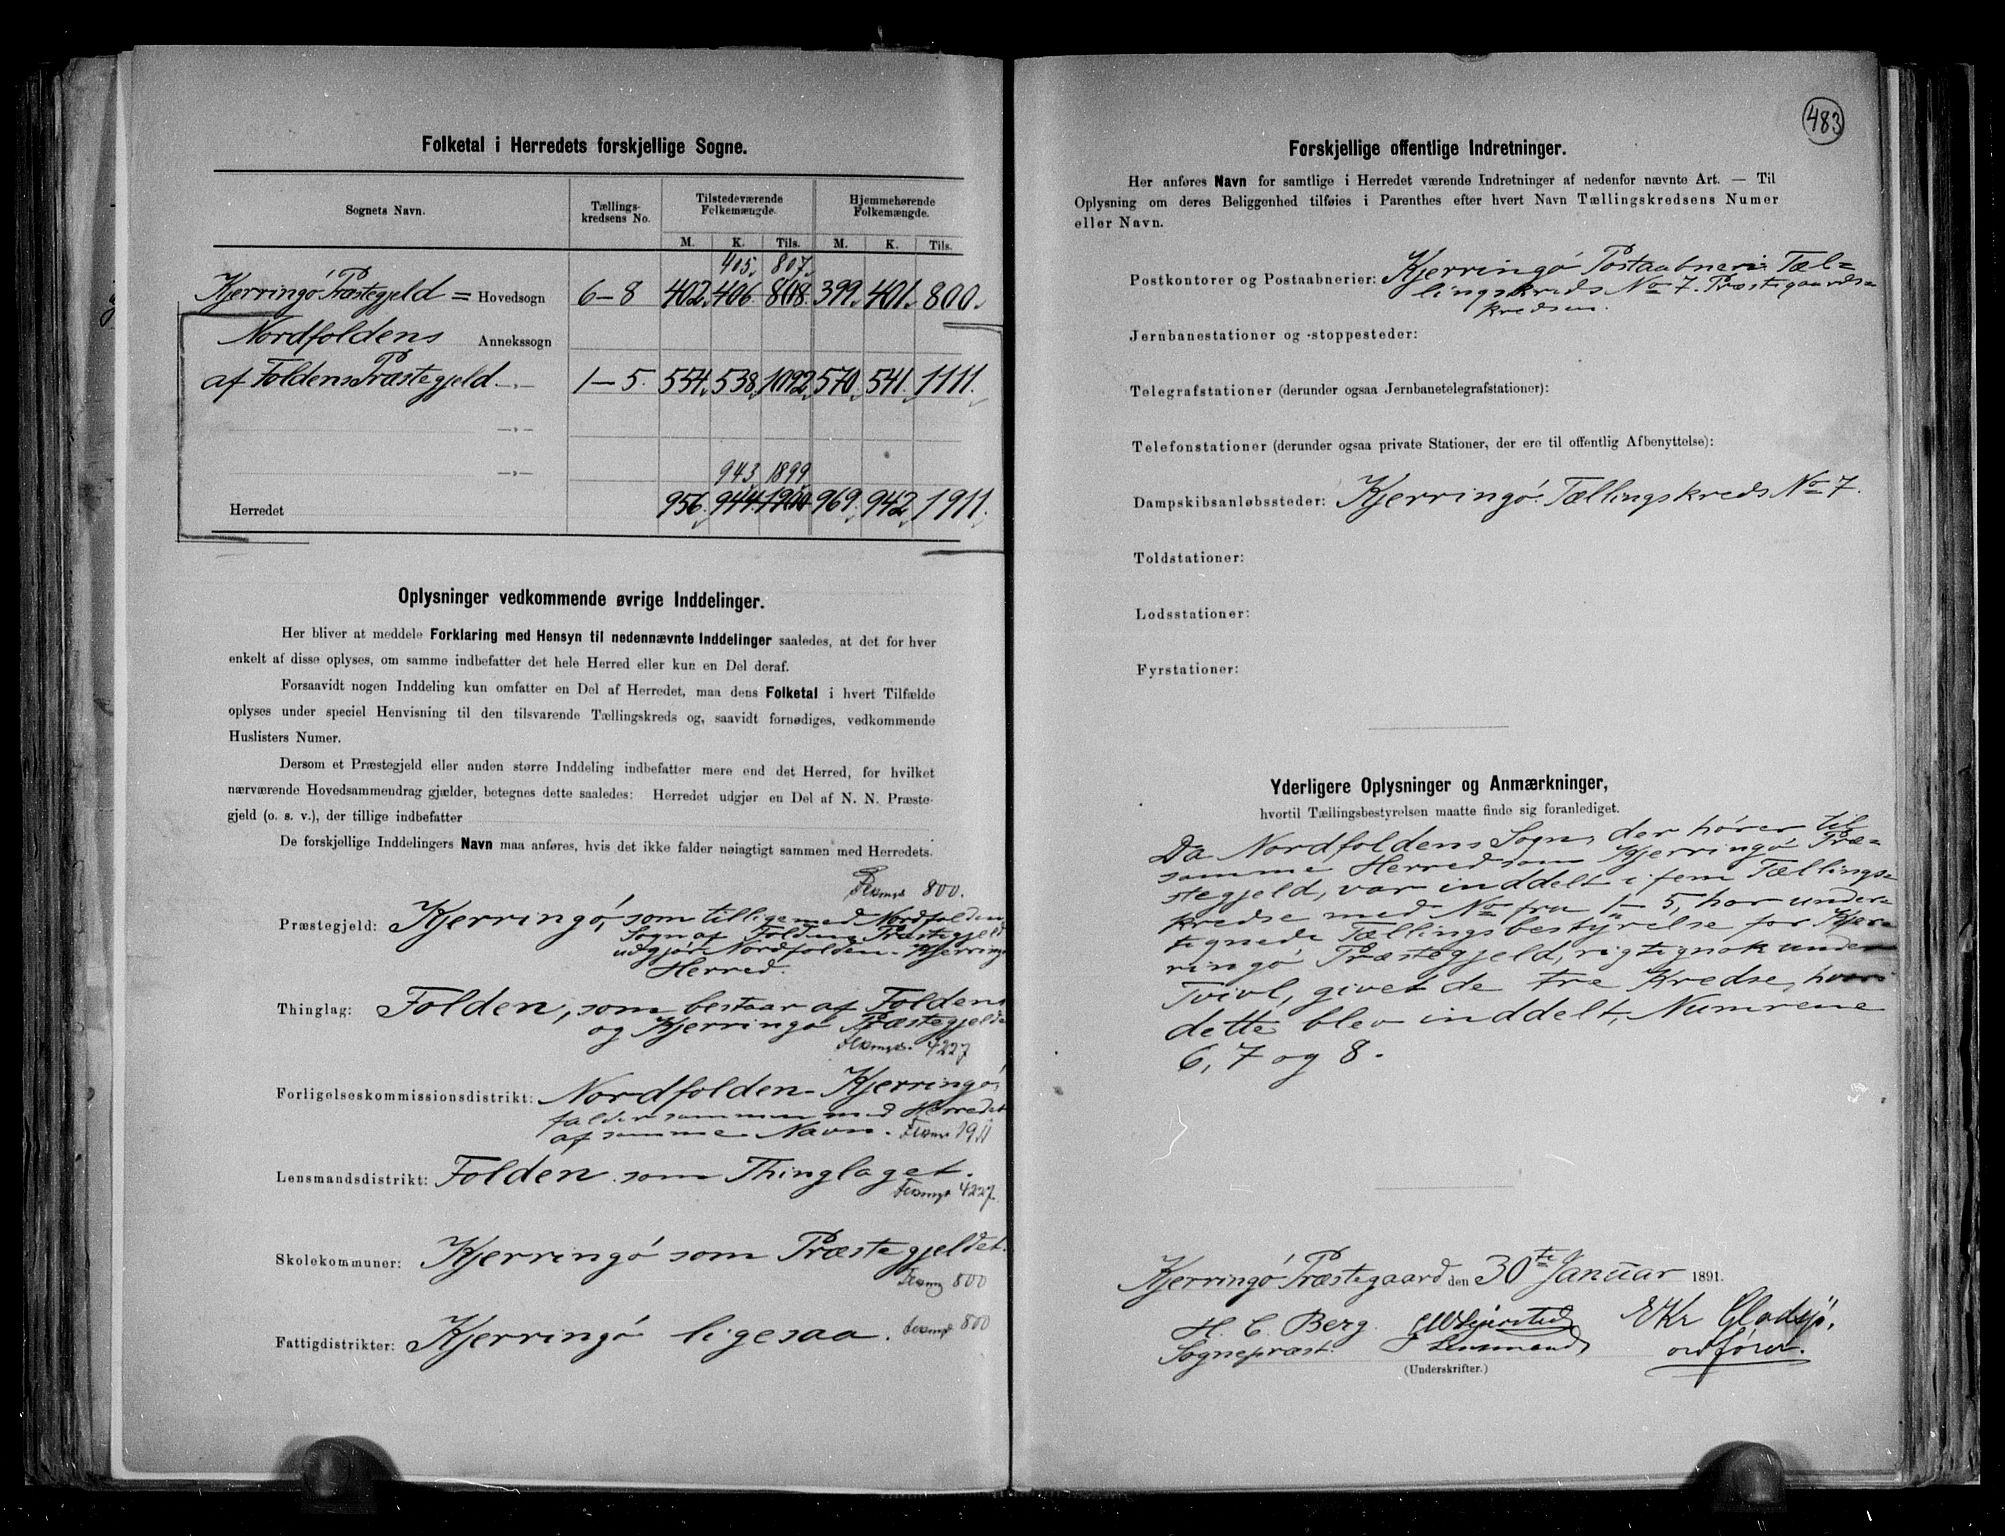 Folketal i Herredets forskjellige Sogne.
Sognets Navn. Tællings- kredsens No. Tilstedeværende Folkemængde. Hjemmehørende Folkemængde.
M. K. Tils. M. K. Tils.
405 807
Kjerringø Præstegjeld = Hovedsogn 6-8 402 406 808 399 401 800
Nordfoldens Annekssogn
af Foldens Præstegjeld -„- 1-5 554 538 1092 570 541 1111
-„-
943 1899
-„-
Herredet 956 944 1900 969 942 1911
Oplysninger vedkommende øvrige Inddelinger.
Her bliver at meddele Forklaring med Hensyn til nedennævnte Inddelinger saaledes, at det for hver
enkelt af disse oplyses, om samme indbefatter det hele Herred eller kun en Del deraf.
Forsaavidt nogen Inddeling kun omfatter en Del af Herredet, maa dens Folketal i hvert Tilfælde
oplyses under speciel Henvisning til den tilsvarende Tællingskreds og, saavidt fornødiges, vedkommende
Huslisters Numer.
Dersom et Præstegjeld eller anden større Inddeling indbefatter mere end det Herred, for hvilket
nærværende Hovedsammendrag gjælder, betegnes dette saaledes: Herredet udgjør en Del af N. N. Præste-
gjeld (o. s. v.), der tillige indbefatter
De forskjellige Inddelingers Navn maa anføres, hvis det ikke falder nøiagtigt sammen med Herredets.
Fkmgd 800.
Præstegjeld: Kjerringø, som tilligemed Nordfolden
Sogn af Foldens Præstegjeld
udgjør Nordfolden-Kjerringø
Herred.
Thinglag: Folden, som bestaar af Foldens
og Kjerringø Præstegjelde
Fkmgd. 4227
Forligelseskommissionsdistrikt: Nordfolden-Kjerringø,
falder sammen med Herredet
af samme Navn. Fkmgd 1911
Lensmandsdistrikt: Folden som Thinglaget.
Fkmgd 4227.
Skolekommuner: Kjerringø som Præstegjeldet.
Fkmgd 800
Fattigdistrikter: Kjerringø ligesaa. Fkmgd 800
483
Forskjellige offentlige Indretninger.
Her anføres Navn for samtlige i Herredet værende Indretninger af nedenfor nævnte Art. — Til
Oplysning om deres Beliggenhed tilføies i Parenthes efter hvert Navn Tællingskredsens Numer
eller Navn.
Postkontorer og Postaabnerier: Kjerringø Postaabneri: Tæl=
lingskreds No 7. Præstegaards=
kredsen.
Jernbanestationer og -stoppesteder:
Telegrafstationer (derunder ogsaa Jernbanetelegrafstationer):
Telefonstationer (derunder ogsaa private Stationer, der ere til offentlig Afbenyttelse):
Dampskibsanløbssteder: Kjerringø. Tællingskreds No 7.
Toldstationer:
Lodsstationer:
Fyrstationer:
Yderligere Oplysninger og Anmærkninger,
hvortil Tællingsbestyrelsen maatte finde sig foranlediget.
Da Nordfoldens Sogn, der hører til
samme Herred som Kjerringø Præ=
stegjeld, var inddelt i fem Tællings=
kredse med No fra 1-5, har under=
tegnede Tællingsbestyrelse for Kjer=
ringø Præstegjeld, rigtignok under
Tvivl, givet de tre Kredse, hvori
dette blev inddelt, Numrene
6, 7 og 8.
Kjerringø Præstegaard den 30te Januar 1891.
H. C. Berg. E Kr Gladsjø,
Sognepræst. Lensmand ordfører.
(Underskrifter.)